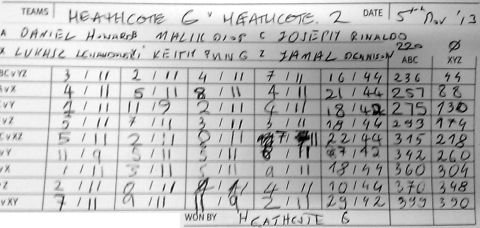 TEAMS HEATHCOTE 6 v HEATHCOTE 2 DATE 5th Nov '13
A DANIEL HOWARD MALIK C JOSEPH RINALDO
X LUKASZ KEITH Z JAMAL
220 0
ABC XYZ
BC v YZ 3 / 11 2 / 11 4 / 11 7 / 11 16 / 44 236 44
v X 4 / 11 5 / 11 8 / 11 4 / 11 21 / 44 257 88
v Y 11 / 9 2 / 11 4 / 11 18 / 42 275 130
v Z 2 / 11 7 / 11 3 / 11 / 11 / 44 293 174
v XZ 5 / 11 2 / 11 / 11 22 / 44 315 218
v Y 11 / 9 5 / 11 5 / 11 / 11 / 42 342 260
v X 1 / 11 3 / 11 5 / 11 9 / 11 18 / 44 360 304
v Z 2 / 11 0 / 11 4 / 11 10 / 44 370 348
v XY 7 / 11 9 / 11 11 / 9 2 / 11 29 / 42 399 390
WON BY HEATHCOTE 6